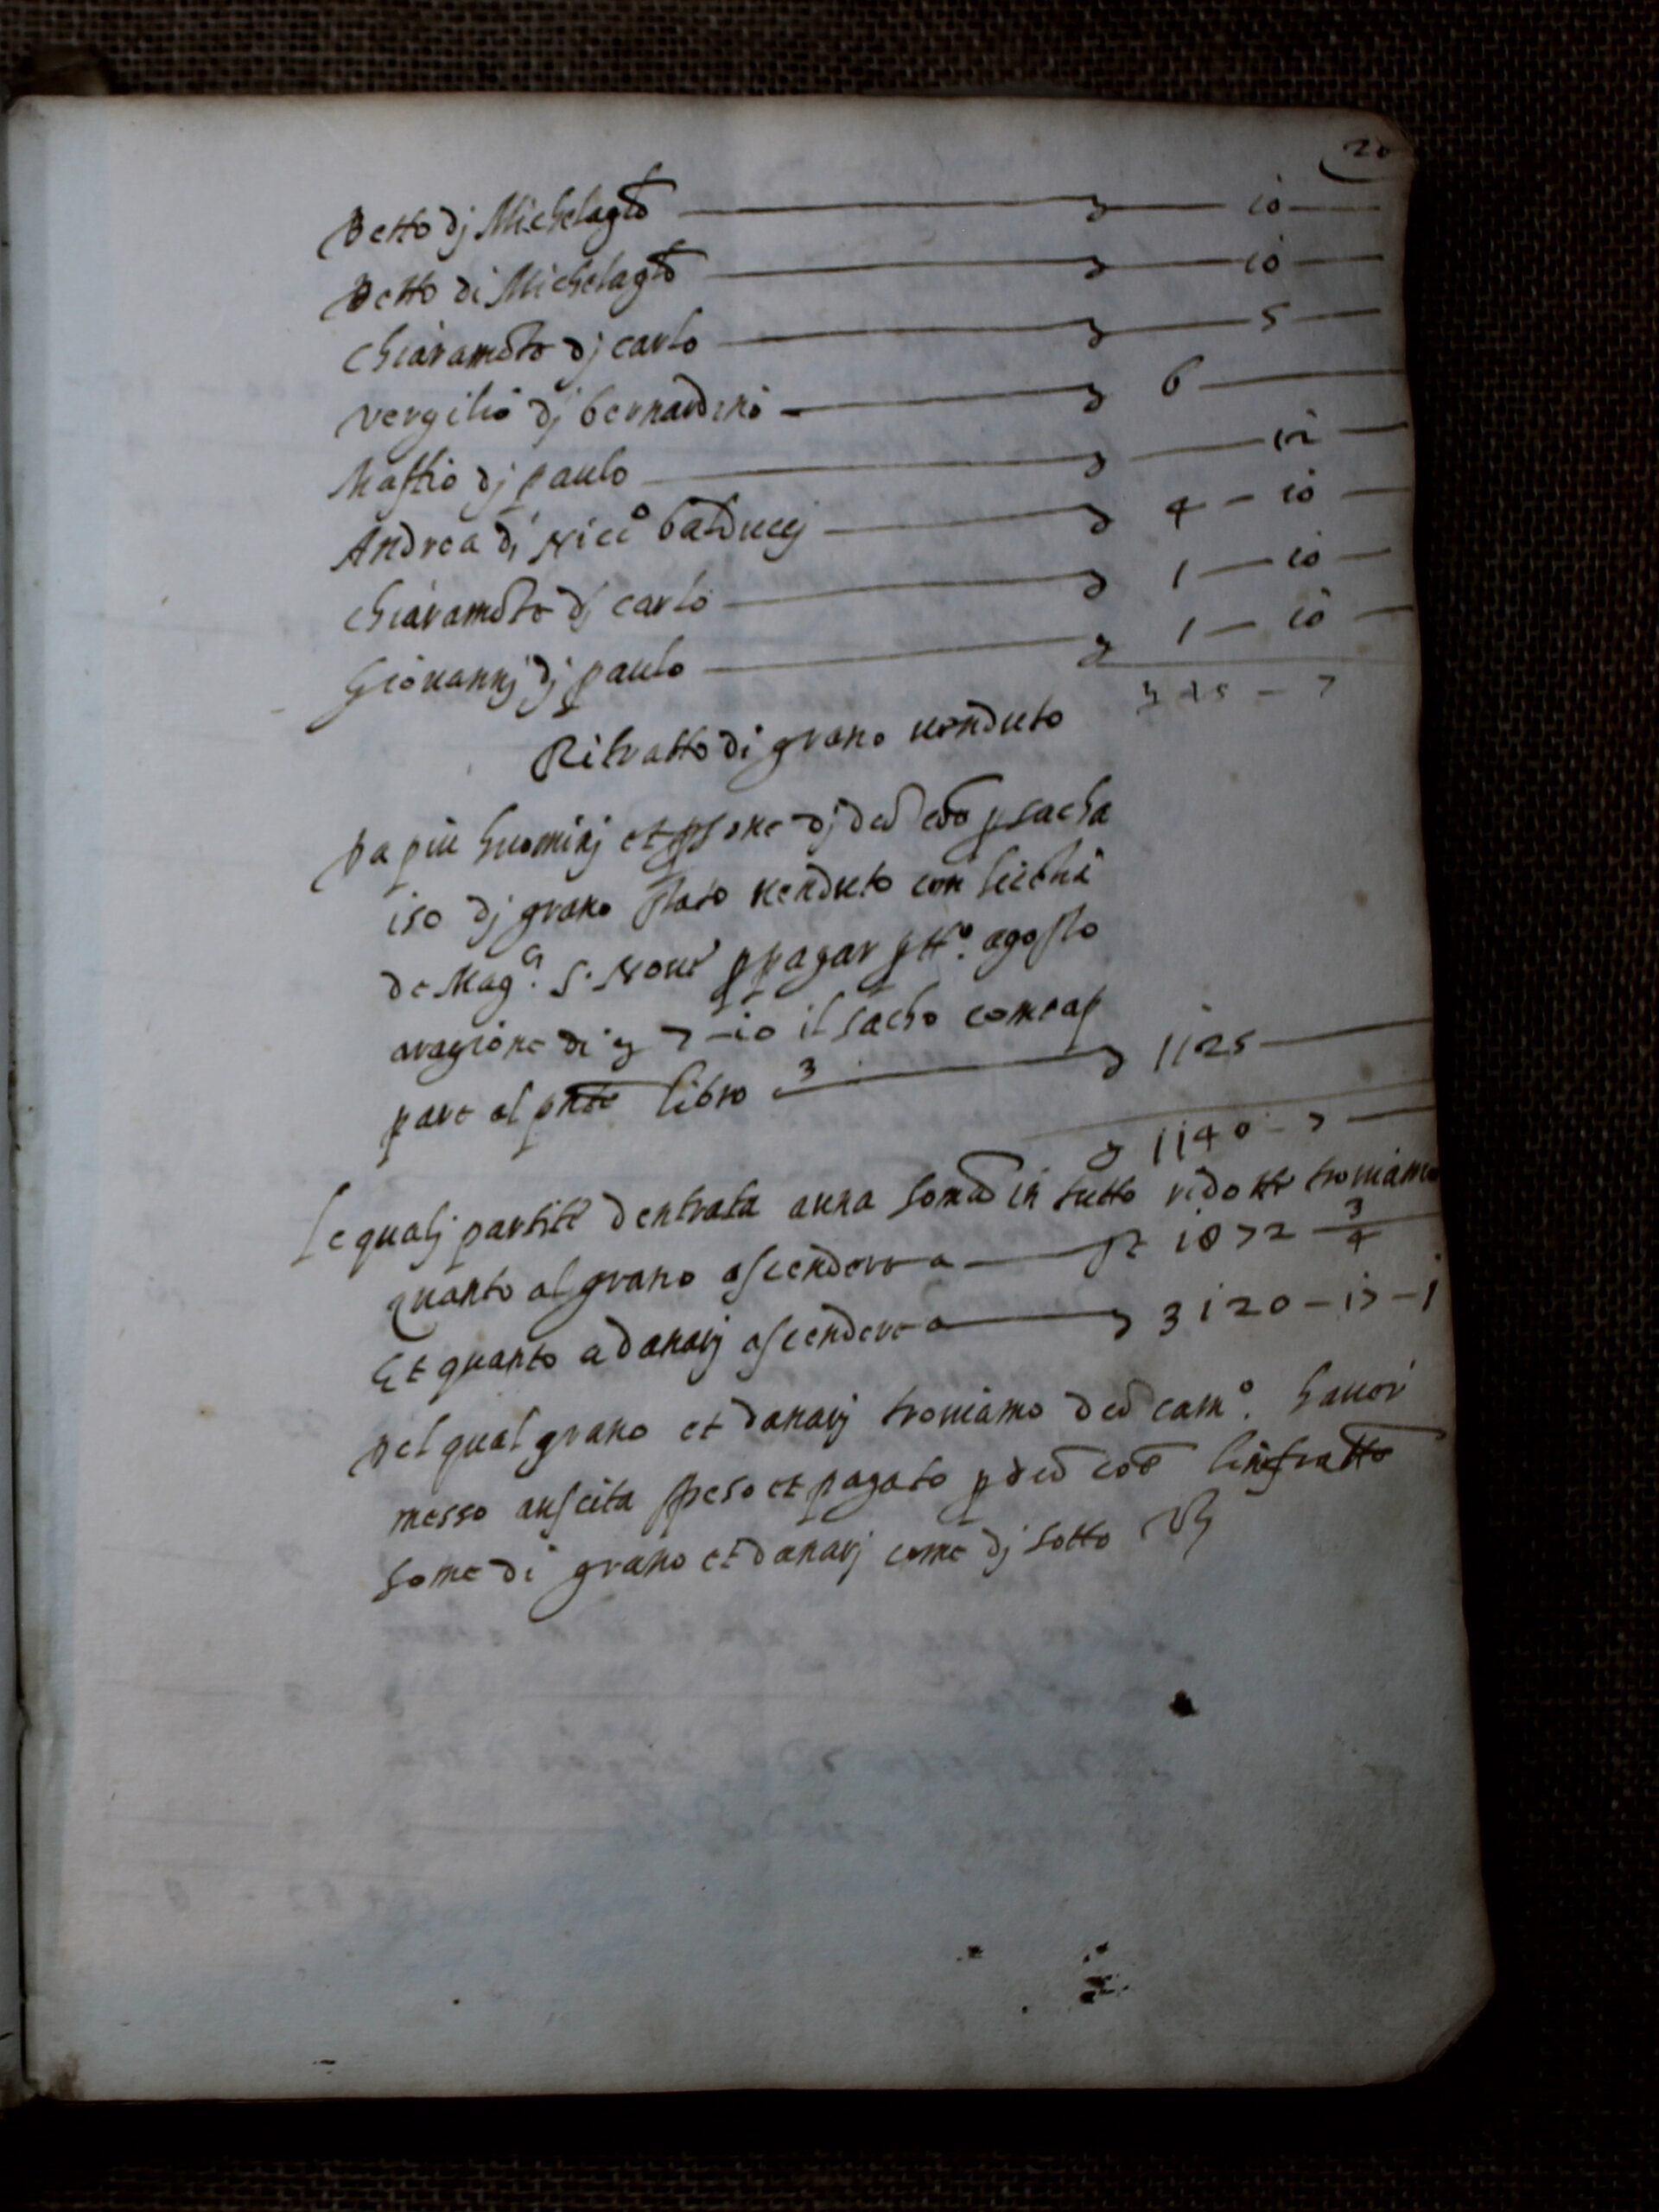 20
Betto dj Michelagło — 10 —
Betto di Michelagło — 10 —
Chiaramōte dj carlo — 5 —
Vergilio dj bernardino — 6 —
Mattio dj paulo — 12 —
Andrea di Nicc° balduccj — 4 — 10 —
Chiaramōte dj carlo — 1 — 10 —
Giouannj dj paulo — 1 — 10 —
15 — 7
Ritratto di grano uenduto
Da piu huominj et psone dj dcō cōo p sacha
150 dj grano stato uenduto con licētia
de Mag.ci S. Noue p pagar p tt° agosto
aragione di 7 — 10 il sacho come ap
pare al pnte libro 3 — 1125 —
1140 — 7 —
Le qualj partite dentrata anna somā in tutto ridotte trouiamo
quanto al grano ascendere a — st 1872 3/4
Et quanto a danarj ascendere a — 3120 — 17 — 1
Del qual grano et danarj trouiamo dcō cam°. hauer
messo auscita speso et pagato p dcō cōo linfratte
some di grano et danarj come dj sotto